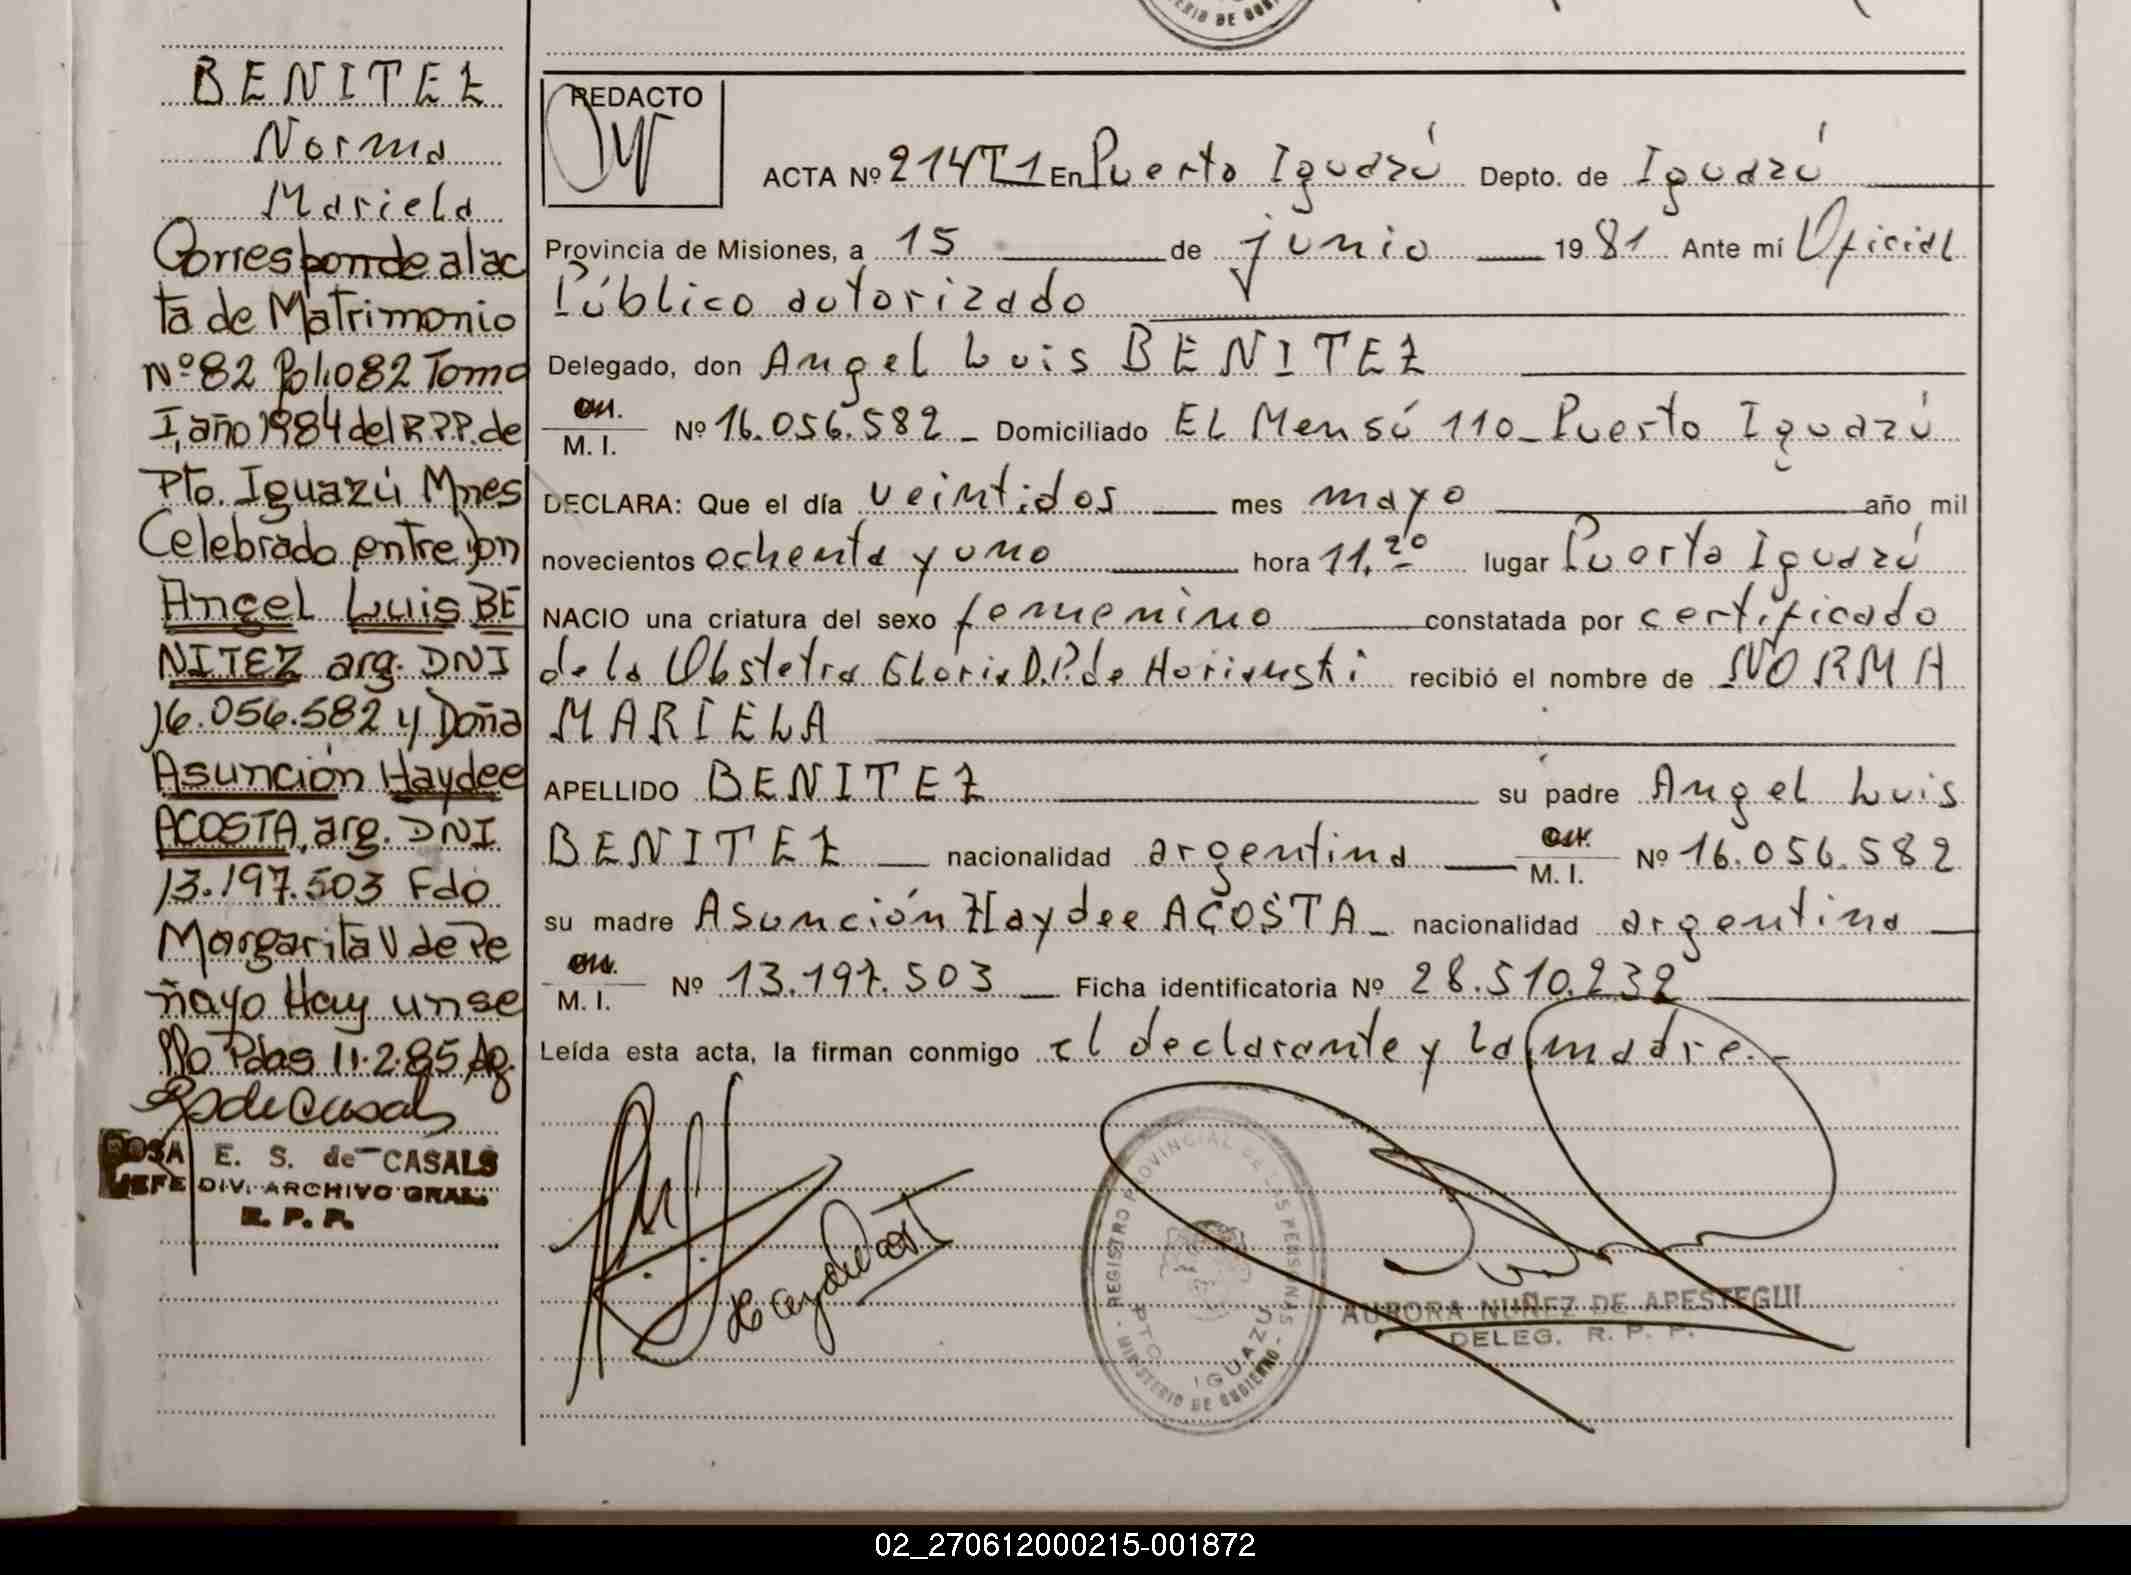 BENITEZ
Norma
Mariela
Corresponde al ac
ta de Matrimonio
Nº 82 Folio 82 Tomo
I, año 1984 del R.P.P. de
Pto. Iguazú Mnes
Celebrado entre Don
Angel Luis BE
NITEZ arg. DNI
16.056.582 y Doña
Asunción Haydee
ACOSTA, arg. DNI
13.197.503 Fdo
Margarita V de Pe
ñayo Hay un se
llo Pdas 11.2.85
ROSA E. S. de CASALS
JEFE DIV. ARCHIVO GRAL.
R. P. P.
MINISTERIO DE GOBIERNO
REDACTO
ACTA Nº 214T1 En Puerto Iguazú Depto. de Iguazú
Provincia de Misiones, a 15 de junio 1981 Ante mí Oficial
Público autorizado
Delegado, don Angel Luis BENITEZ
M. I. Nº 16.056.582 - Domiciliado EL Mensú 110 - Puerto Iguazú
DECLARA: Que el día veintidos mes mayo año mil
novecientos ochenta y uno hora 11,20 lugar Puerto Iguazú
NACIO una criatura del sexo femenino constatada por certificado
de la Obstetra Gloria D.P. de recibió el nombre de NORMA
MARIELA
APELLIDO BENITEZ su padre Angel Luis
BENITEZ nacionalidad argentina M. I. Nº 16.056.582
su madre Asunción Haydee ACOSTA - nacionalidad argentina
M. I. Nº 13.197.503 Ficha identificatoria Nº 28.510.232
Leída esta acta, la firman conmigo el declarante y la madre.-
REGISTRO PROVINCIAL DE LAS PERSONAS - MINISTERIO DE GOBIERNO -
DPTO. IGUAZU
AURORA NUÑEZ DE APESTEGUI
DELEG. R. P. P.
02_270612000215-001872